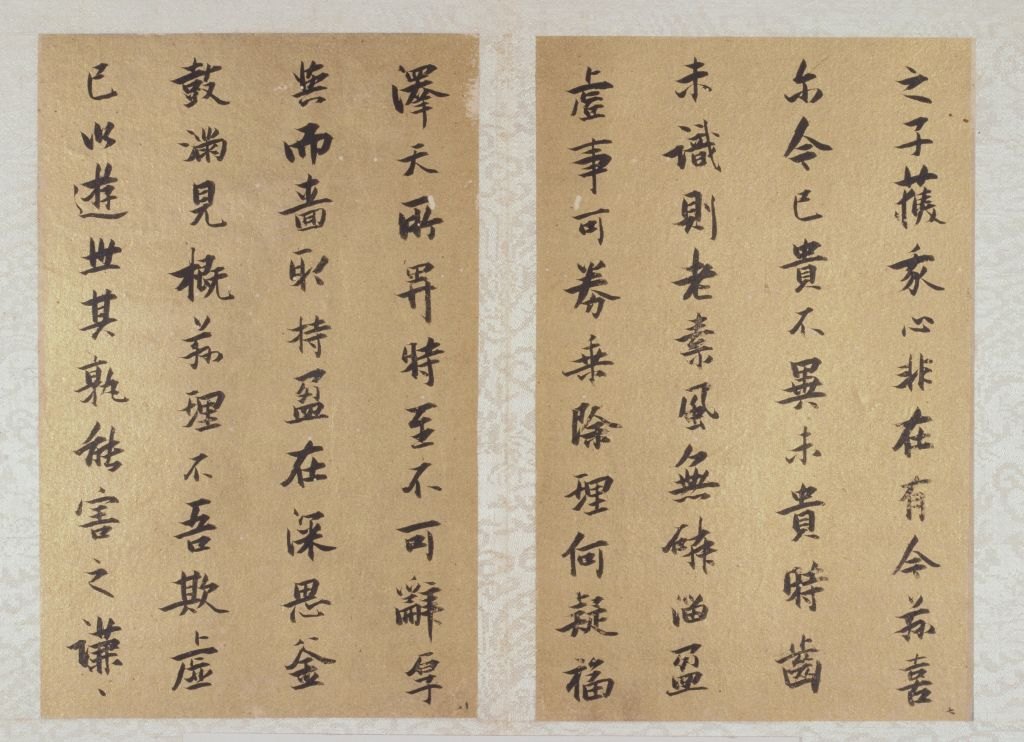 之子獲我心非在有今茲喜
尔今已貴不異未貴時齒
未識則老素風無磷淄盈
虛事可券乗除理何疑福
澤天所畀時至不可辭厚
與而嗇取持盈在深思釜
鼓滿見概茲理不吾欺虛
已以遊世其孰能害之謙、